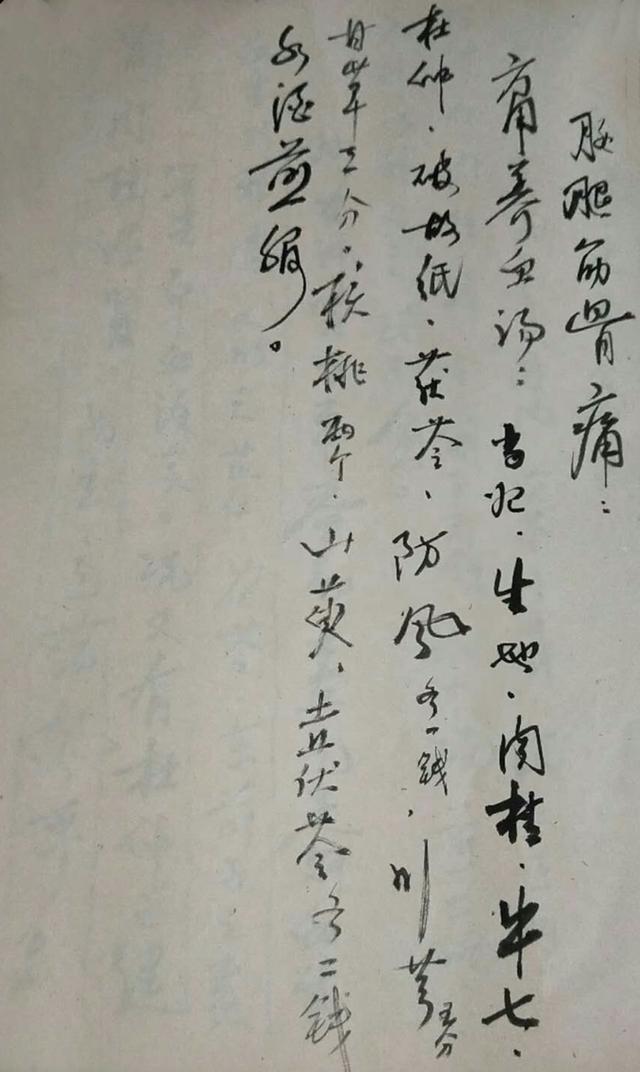 腿筋骨痛：
养血汤：当归、生地、肉桂、牛七、
杜仲、破故纸、茯苓、防风各一钱，川芎五分
甘草三分，核桃两个，山萸、土茯苓各二钱
水酒煎服。